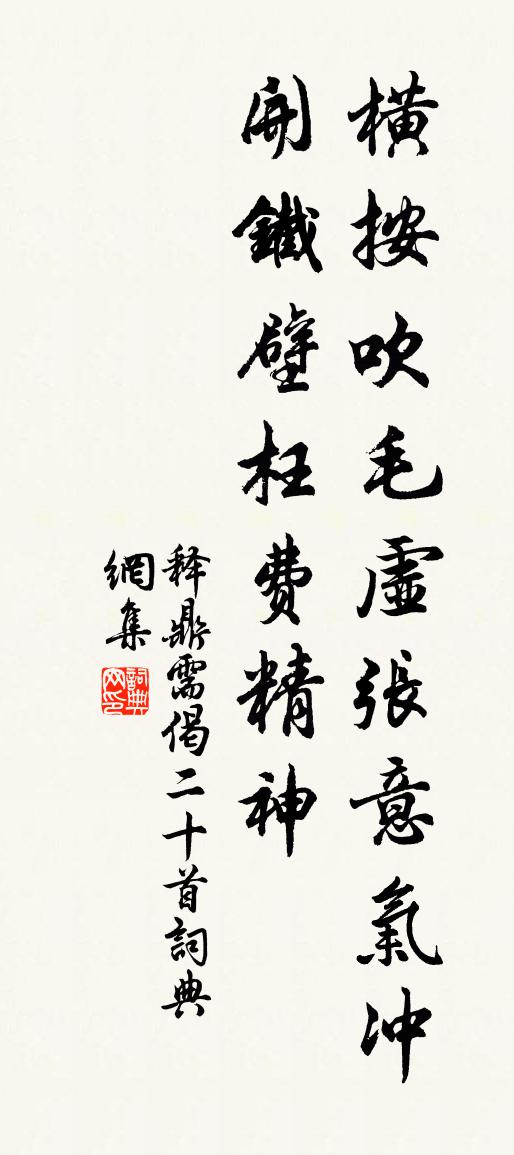 橫按吹毛虛張意氣沖
開鐵壁枉費精神
釋鼎需偈二十首詞典
網集
詞典網印